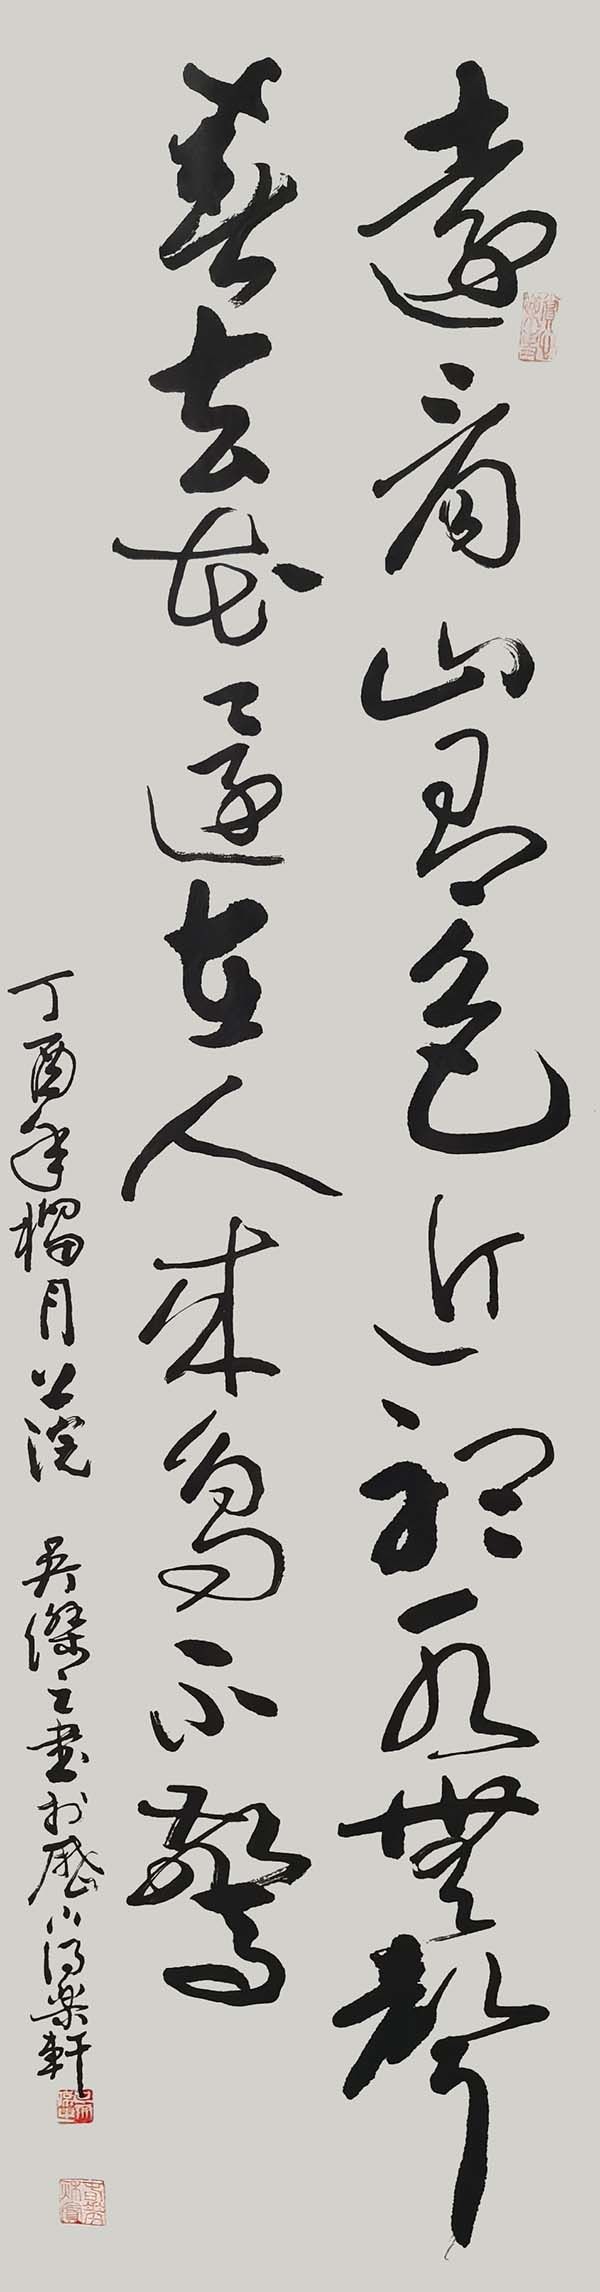 遠看山有色近聽水無聲
春去花還在人來鳥不驚
丁酉年榴月浣 吳傑之書於歷得樂軒